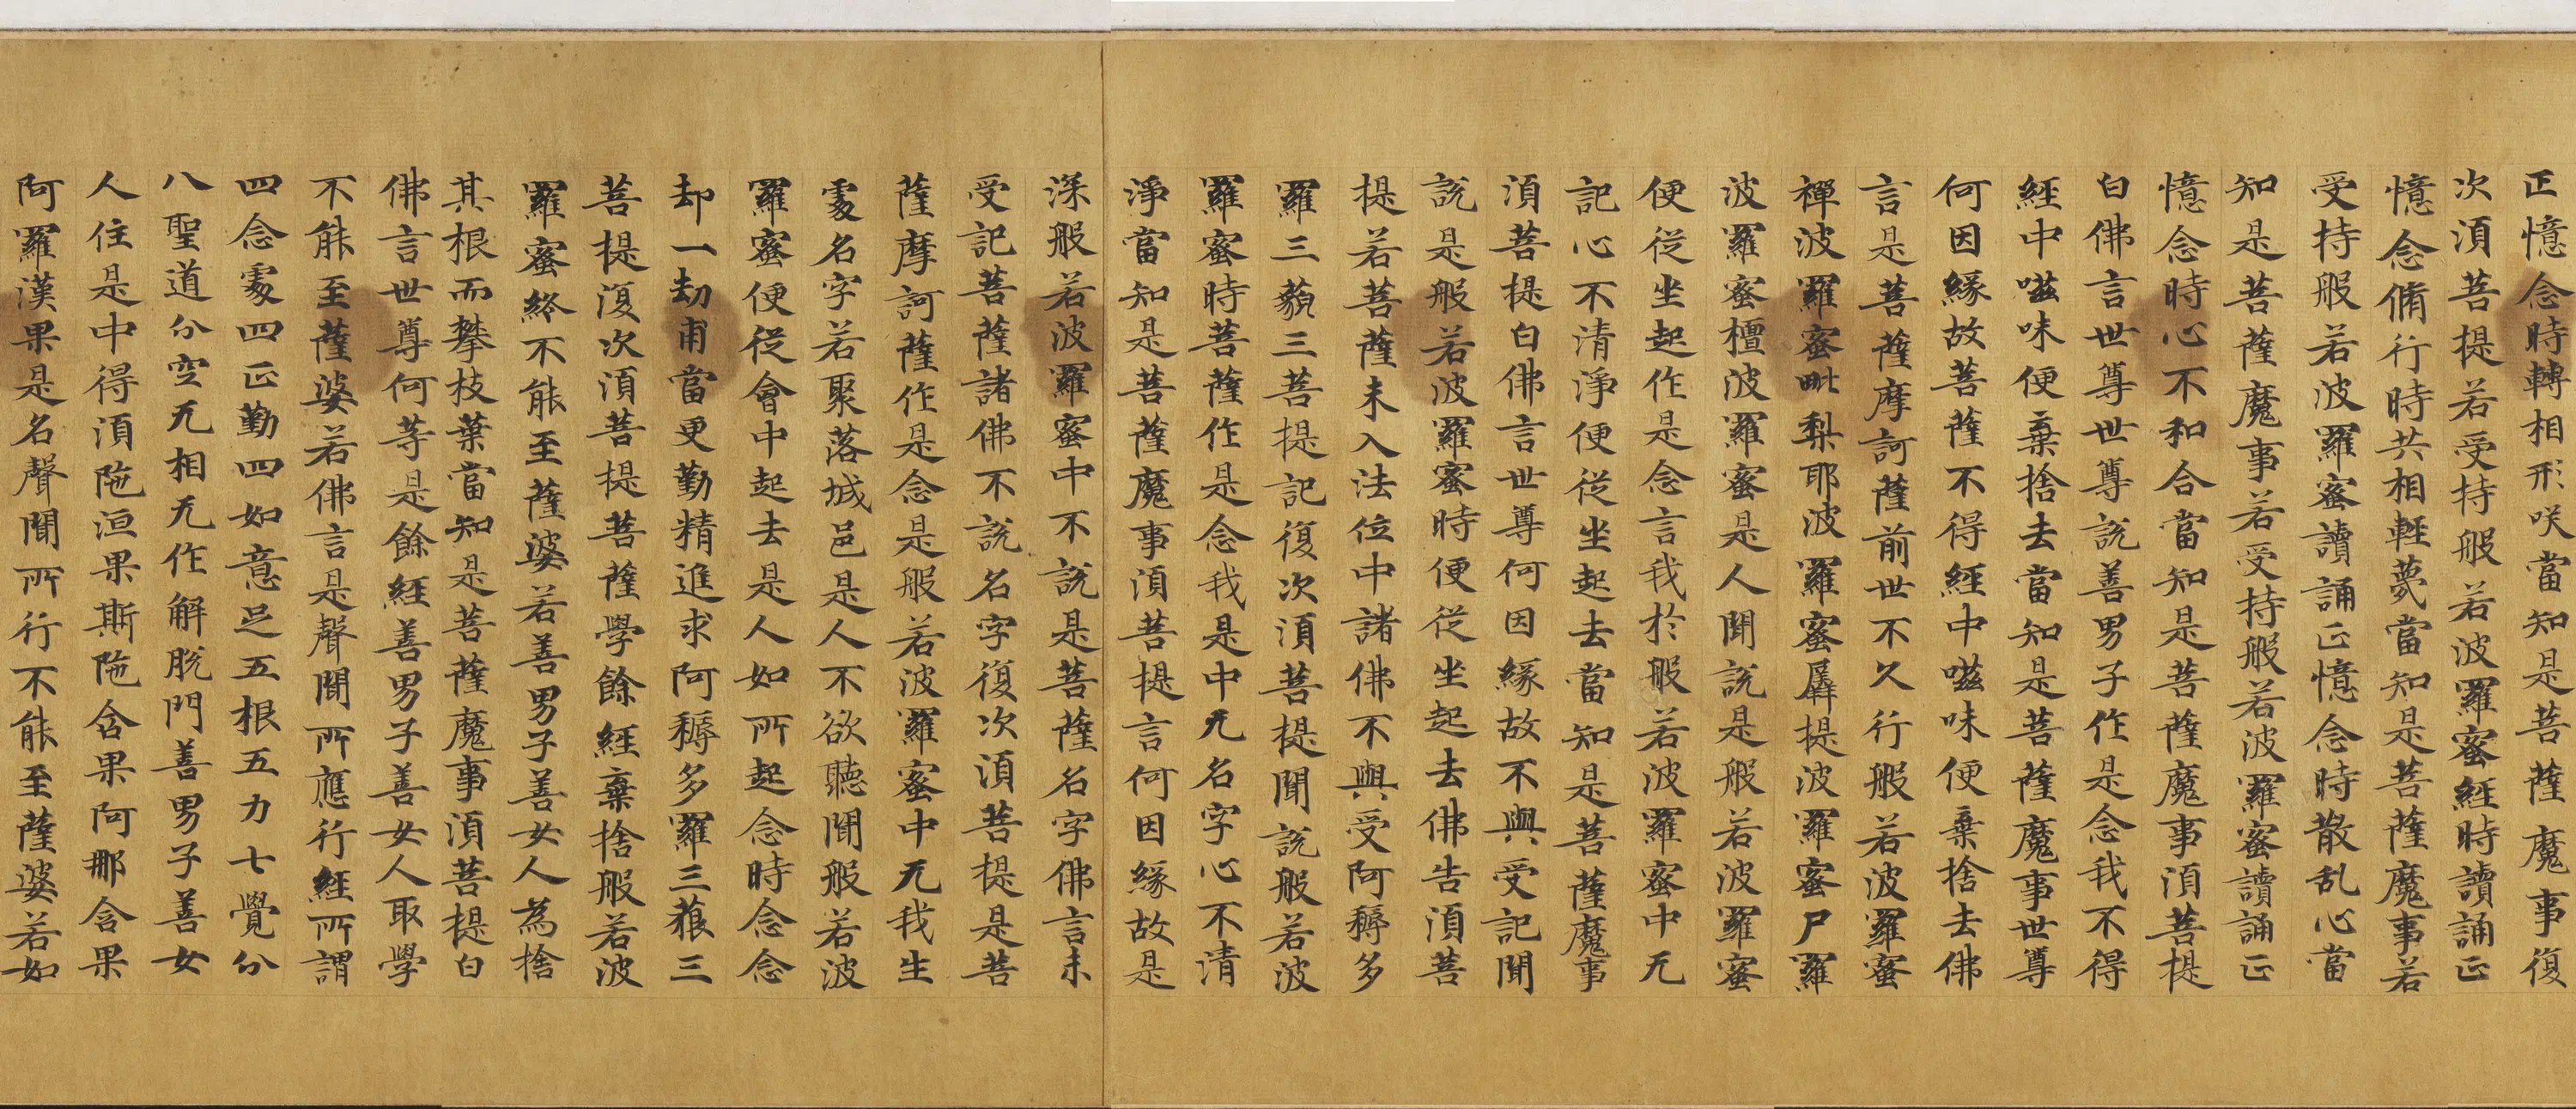 正憶念時轉相形咲當知是菩薩魔事復
次湏菩提若受持般若波羅蜜經時讀誦正
憶念脩行時共相輕蔑當知是菩薩魔事若
受持般若波羅蜜讀誦正憶念時散乱心當
知是菩薩魔事若受持般若波羅蜜讀誦正
憶念時心不和合當知是菩薩魔事湏菩提
白佛言世尊世尊說善男子作是念我不得
經中嗞味便棄捨去當知是菩薩魔事世尊
何因緣故菩薩不得經中嗞味便棄捨去佛
言是菩薩摩訶薩前世不久行般若波羅蜜
禪波羅蜜毗梨耶波羅蜜羼提波羅蜜尸羅
波羅蜜檀波羅蜜是人聞說是般若波羅蜜
便從坐起作是念言我於般若波羅蜜中无
記心不清淨便從坐起去當知是菩薩魔事
湏菩提白佛言世尊何因緣故不與受記聞
說是般若波羅蜜時便從坐起去佛告湏菩
提若菩薩未入法位中諸佛不與受阿耨多
羅三藐三菩提記復次湏菩提聞說般若波
羅蜜時菩薩作是念我是中无名字心不清
淨當知是菩薩魔事湏菩提言何因緣故是
深般若波羅蜜中不說是菩薩名字佛言未
受記菩薩諸佛不說名字復次湏菩提是菩
薩摩訶薩作是念是般若波羅蜜中无我生
處名字若聚落城邑是人不欲聽聞般若波
羅蜜便從會中起去是人如所起念時念念
却一劫甫當更勤精進求阿耨多羅三藐三
菩提復次湏菩提菩薩學餘經棄捨般若波
羅蜜終不能至薩婆若善男子善女人為捨
其根而攀枝葉當知是菩薩魔事湏菩提白
佛言世尊何等是餘經善男子善女人取學
不能至薩婆若佛言是聲聞所應行經所謂
四念處四正勤四如意足五根五力七覺分
八聖道分空无相无作解脫門善男子善女
人住是中得湏陁洹果斯陁含果阿那含果
阿羅漢果是名聲聞所行不能至薩婆若如